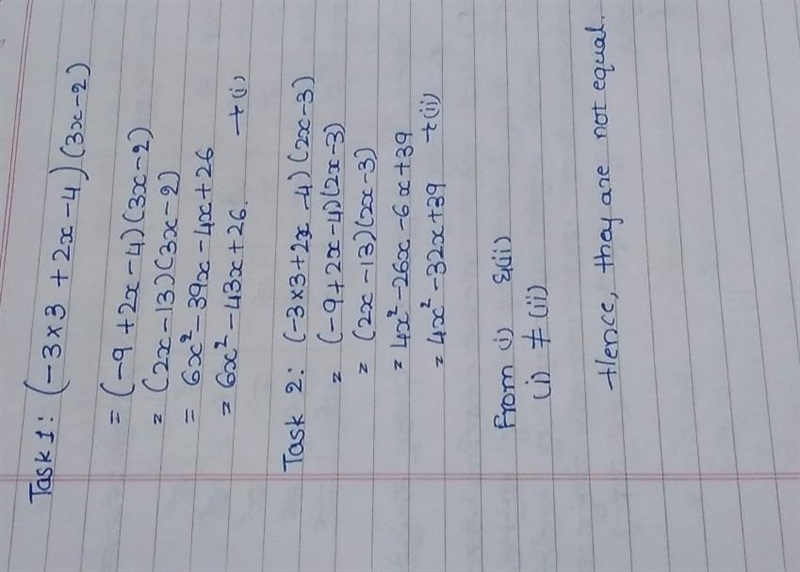 Task 1: (-3×3 + 2x - 4) (3x-2)
= (-9 + 2x - 4) (3x - 2)
= (2x - 13) (3x - 2)
= 6x² - 39x - 4x + 26
= 6x² - 43x + 26. → (i)
Task 2: (-3×3+2x -4) (2x-3)
= (-9 + 2x - 4) (2x - 3)
= (2x - 13) (2x - 3)
= 4x² - 26x - 6x + 39
= 4x² - 32x + 39 → (ii)
From (i) & (ii)
(i) ≠ (ii)
Hence, they are not equal.